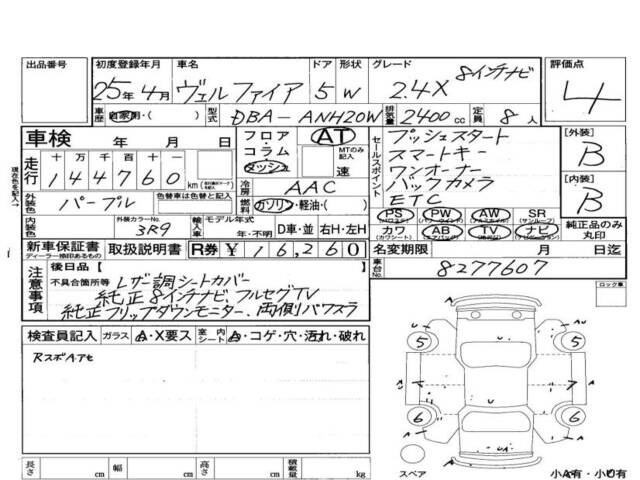 出品番号 初度登録年月 車名 ドア 形状 グレード 評価点
25年4月 ヴェルファイア 5 W 2.4X 8インチナビ 4
車歴 自家用・( ) 型式 DBA-ANH20W 排気量 2400cc 定員 8人
車検 年 月 日 フロア AT
コラム MTのみ記入
ダッシュ 速
セールスポイント
プッシュスタート
スマートキー
ワンオーナー
バックカメラ
ETC
[外装] B
[内装] B
現在色を記入→
走行 十 万 千 百 十 一
144760 km
冷房 AAC
外装色 パープル 色替車は色替と記入 燃料 ガソリン・軽油・( )
PS PW AW SR
(パワステ) (パワーウィンド) (アルミホイル) (サンルーフ)
カワ AB TV ナビ
(カワシート) (エアバッグ) (ナビゲーション)
純正品のみ丸印
内装色 外装カラーNo. 3R9 輸入車 モデル年式 年・不明 D車・並 右H・左H
新車保証書 取扱説明書 R券 ¥16,260 名変期限 月 日迄
ディーラー捺印あるもの
車台No. 8277607
注意事項 後日品【 】
不具合箇所等 レザー調シートカバー
純正8インチナビ、フルセグTV
純正フリップダウンモニター、両側パワスラ
ロック車
検査員記入 ガラス A・X要ス 室内シート A・コゲ・穴・汚れ・破れ
RスポAアセ
5 5
7
6 6
スペア 小A有・小U有
長さ cm 幅 cm 高さ cm 積載量 kg